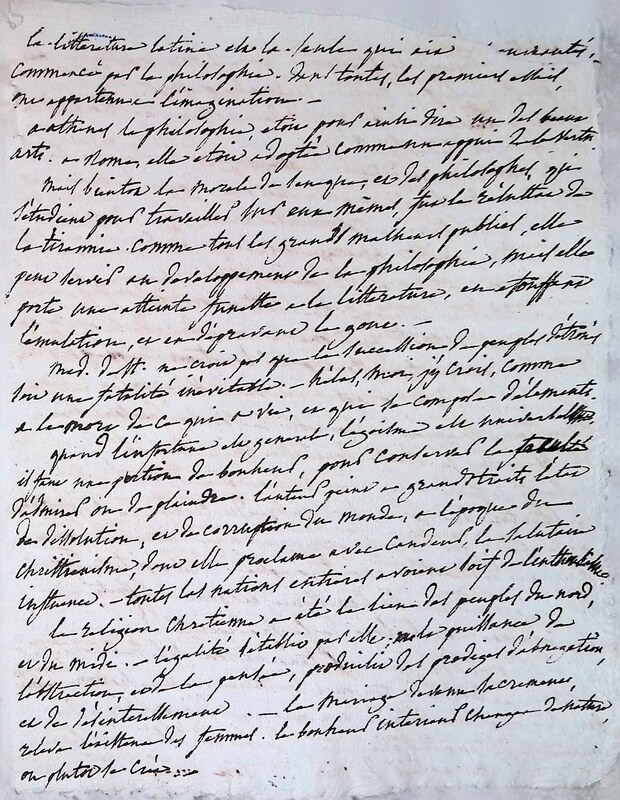 la littérature latine est la seule qui ait
commencé par la philosophie. dans toutes, les premiers essais,
ont appartenu a l'imagination. —
a athènes la philosophie, etoit pour ainsi dire un des beaux
arts. a Rome, elle etoit adoptée comme un appui de la vertu.
mais bientot la morale de seneque, et des philosophes, qui
s'étudient pour travailler sur eux mêmes, fut le résultat de
la tirannie. comme tous les grands malheurs publics, elle
peut servir au developpement de la philosophie, mais elle
porte une atteinte funeste a la littérature, en etouffant
l'émulation, et en dépravant le gout. —
mad. de st. ne croit pas que la succession de peuples détronés
soit une fatalité inévitable. — hélas, moi j'y crois, comme
a la mort de ce qui a vie, et qui se compose d'éléments.
quand l'infortune est general, l'égoisme est universel
il faut une portion de bonheur, pour conserver la faculté
d'admirer ou de plaindre. l'auteur peint a grands traits l'état
de dissolution, et de corruption du monde, a l'époque du
christianisme, dont elle proclame avec candeur, la salutaire
influence. — toutes les nations entières avoient soif de l'enthousiasme
la religion chretienne a été le lien des peuples du nord,
et du midi. — l'égalité s'établit par elle. la puissance de
l'abstraction, et de la pensée, produisit des prodiges d'abnegation,
et de désinteressement — le mariage devenu sacrement,
releva l'existence des femmes. le bonheur intérieur changea de nature,
ou plutot se créa